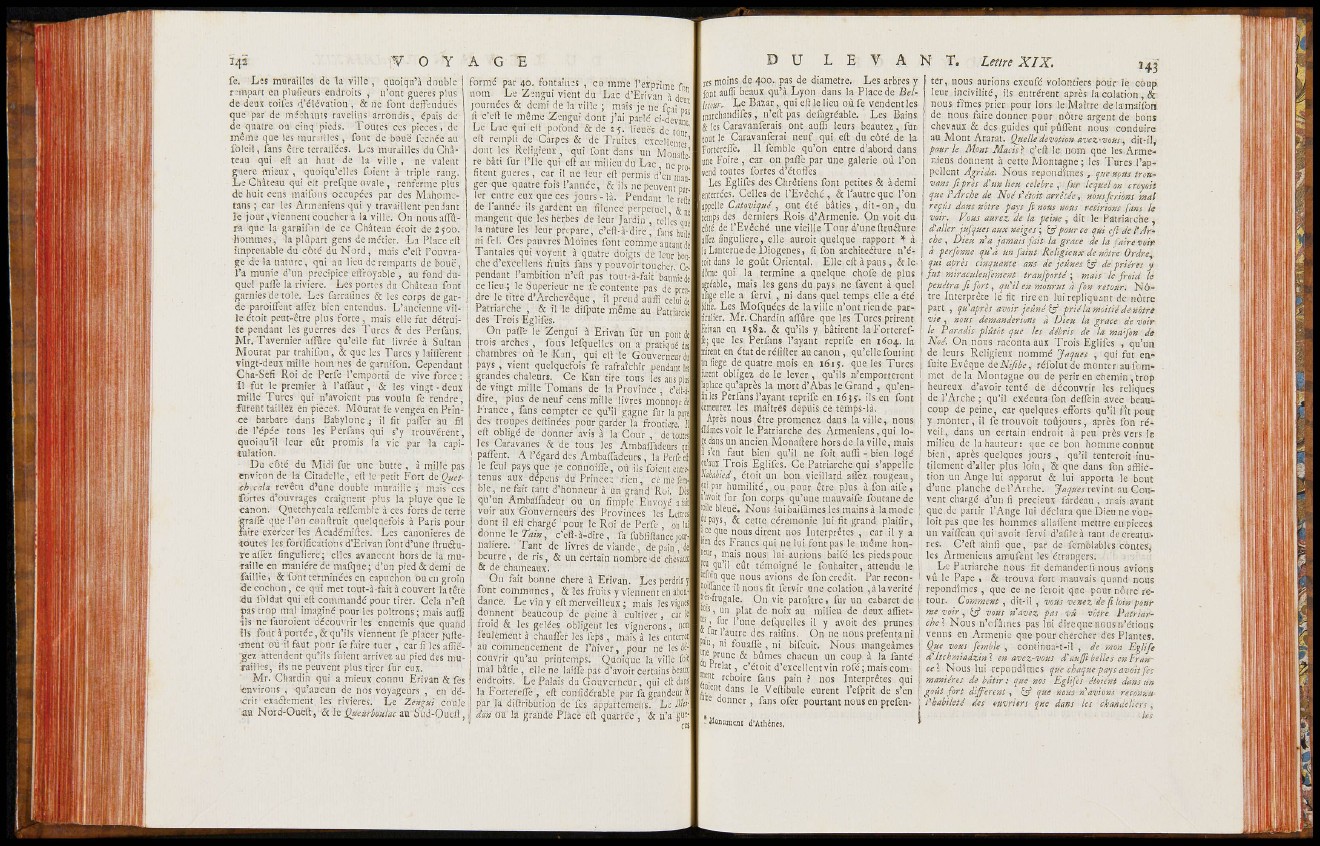 142 V O Y A G E
se. Les murailles de la ville, quoiqu'à double
rempart en plusieurs endroits, n'ont gueres plus
de deux toises d'élévation, & ne sont deffenduës
que par de méchants ravelins arrondis, épais de
de quatre ou cinq pieds. Toutes ces pieces, de
même que les murailles, sont de bouë sechée au
soleil, sans être terrassées. Les murailles du Châ-
teau qui est au haut de la ville, ne valent
guere mieux, quoiqu'elles soient à triple rang.
Le Château qui est presque ovale, renferme plus
de huit cens maisons occupées par des Mahome-
tans; car les Armeniens qui y travaillent pendant
le jour, viennent coucher à la ville. On nous assû-
ra que la garnison de ce Château étoit de 2500.
hommes, la plûpart gens de métier. La Place est
imprenable du côté du Nord, mais c'est l'ouvra-
ge de la nature, qui au lieu de remparts de bouë,
l'a munie d'un precipice effroyable, au fond du-
quel passe la riviere. Les portes du Château sont
garnies de tole. Les sarrasines & les corps de gar-
de paroissent assez bien entendus. L'ancienne vil-
le étoit peut-être plus forte, mais elle fut détrui-
te pendant les guerres des Turcs & des Persans.
Mr. Tavernier assûre qu'elle fut livrée à Sultan
Mourat par trahison, & que les Turcs y laisserent
vingt-deux mille hommes de garnison. Cependant
Cha-Sefi Roi de Perse l'emporta de vive force:
Il fut le premier à l'assaut, & les vingt-deux
mille Turcs qui n'avoient pas voulu se rendre,
furent taillez en pieces. Mourat se vengea en Prin-
ce barbare dans Babylone; il fit passer au fil
de l'épée tous les Persans qui s'y trouvérent,
quoiqu'il leur eût promis la vie par la capi-
tulation.
Du côté du Midi sur une butte, à mille pas
environ de la Citadelle, est le petit Fort de Quet-
chycala revêtu d'une double muraille; mais ces
sortes d'ouvrages craignent plus la pluye que le
canon. Quetchycala ressemble à ces forts de terre
grasse que l'on construit quelquefois à Paris pour
faire exercer les Académistes. Les canonieres de
toutes les fortifications d'Erivan sont d'une structu-
re assez singuliere; elles avancent hors de la mu-
raille en maniére de masque; d'un pied & demi de
saillie, & sont terminées en capuchon ou en groin
de cochon, ce qui met tout-à-fait à couvert la tête
du soldat qui est commandé pour tirer. Cela n'est
pas trop mal imaginé pour les poltrons; mais aussi
ils ne sauroient découvrir les ennemis que quand
ils sont à portée, & qu'ils viennent se placer juste-
ment où il faut pour se faire tuer, car si les assié-
gez attendent qu'ils soient arrivez au pied des mu-
railles, ils ne peuvent plus tirer sur eux.
Mr. Chardin qui a mieux connu Erivan & ses
environs, qu'aucun de nos voyageurs, en dé-
crit exactement les rivieres. Le Zengui coule
au Nord-Ouest, & le Queurboulac au Sud-Ouest,
formé par 40. fontaines, comme l'exprime son
nom Le Zengui vient du Lac d'Erivan à deux
journées & demi de la ville; mais je ne sçai pas
si c'est le même Zengui dont j'ai parlé ci-devant.
Le Lac qui est pofond & de 25. lieuës de tour,
est rempli de Carpes & de Truites excellentes,
dont les Religieux, qui sont dans un Monaste-
re bâti sur l'Ile qui est au milieu du Lac, ne pro-
fitent gueres, car il ne leur est permis d'en man-
ger que quatre fois l'année, & ils ne peuvent par-
ler entre eux que ces jours-là. Pendant le reste
de l'année ils gardent un silence perpetuel, & ne
mangent que les herbes de leur Jardin, telles que
la nature les leur prepare, c'est-à-dire, sans huile
ni sel. Ces pauvres Moines sont comme autant de
Tantales qui voyent à quatre doigts de leur bou-
che d'excellens fruits sans y pouvoir toucher. Ce-
pendant l'ambition n'est pas tout-à-fait bannie de
ce lieu; le Superieur ne se contente pas de pren-
dre le titre d'Archevêque, il prend aussi celui de
Patriarche, & il le dispute même au Patriarche
des Trois Eglises.
On passe le Zengui à Erivan sur un pont de
trois arches, sous lesquelles on a pratiqué des
chambres où le Kan, qui est le Gouverneur du
pays, vient quelquefois se rafraîchir pendant les
grandes chaleurs. Ce Kan tire tous les ans plus
de vingt mille Tomans de la Province, c'est-à-
dire, plus de neuf cens mille livres monnoye de
France, sans compter ce qu'il gagne sur la paye
des troupes destinées pour garder la frontiere. Il
est obligé de donner avis à la Cour, de toutes
les Caravanes & de tous les Ambassadeurs qui
passent. A l'égard des Ambassadeurs, la Perse est
le seul pays que je connoisse, où ils soient entre-
tenus aux dépens du Prince: rien, ce me sem-
ble, ne fait tant d'honneur à un grand Roi. Dès
qu'un Ambassadeur ou un simple Envoyé a fait
voir aux Gouverneurs des Provinces les Lettres
dont il est chargé pour le Roi de Perse, on lui
donne le Tain, c'est-à-dire, sa subsistance jour-
naliere. Tant de livres de viande, de pain, de
beurre, de ris, & un certain nombre de chevaux
& de chameaux.
On fait bonne chere à Erivan. Les perdrix y
sont communes, & les fruits y viennent en abon-
dance. Le vin y est merveilleux; mais les vignes
donnent beaucoup de peine à cultiver, car le
froid & les gelées obligent les vignerons, non
seulement à chausser les seps, mais à les enterrer
au commencement de l'hiver, pour ne les dé-
couvrir qu'au printemps. Quoique la ville soit
mal bâtie, elle ne laisse pas d'avoir certains beaux
endroits. Le Palais du Gouverneur, qui est dans
la Forteresse, est considérable par sa grandeur &
par la distribution de ses appartemens. Le Mei-
dan ou la grande Place est quarrée, & n'a gue-
res
D U L E V A N T. Lettre XIX. 143
res moins de 400. pas de diametre. Les arbres y
sont aussi beaux qu'à Lyon dans la Place de Bel-
lecour. Le Bazar, qui est le lieu où se vendent les
marchandises, n'est pas desagréable. Les Bains
& les Caravanserais ont aussi leurs beautez, sur
tout le Caravanserai neuf qui est du côté de la
Forteresse. Il semble qu'on entre d'abord dans
une Foire, car on passe par une galerie où l'on
vend toutes sortes d'étoffes.
Les Eglises des Chrêtiens sont petites & à demi
enterrées. Celles de l'Evêché, & l'autre que l'on
appelle Catoviqué, ont été bâties, dit-on, du
temps des derniers Rois d'Armenie. On voit du
côté de l'Evêché une vieille Tour d'une structure
assez singuliere, elle auroit quelque rapport * à
la Lanterne de Diogenes, si son architecture n'é-
toit dans le goût Oriental. Elle est à pans, & le
dôme qui la termine a quelque chose de plus
agréable, mais les gens du pays ne savent à quel
usage elle a servi, ni dans quel temps elle a été
bâtie. Les Mosquées de la ville n'ont rien de par-
ticulier. Mr. Chardin assûre que les Turcs prirent
Erivan en 1582. & qu'ils y bâtirent la Forteres-
se; que les Persans l'ayant reprise en 1604. la
mirent en état de résister au canon, qu'elle soutint
un siege de quatre mois en 1615. que les Turcs
furent obligez de le lever, qu'ils n'emporterent
la place qu'après la mort d'Abas le Grand, qu'en-
fin les Persans l'ayant reprise en 1635. ils en sont
demeurez les maîtres depuis ce temps-là.
Après nous être promenez dans la ville, nous
allâmes voir le Patriarche des Armeniens, qui lo-
ge dans un ancien Monastere hors de la ville, mais
il s'en faut bien qu'il ne soit aussi-bien logé
qu'aux Trois Eglises. Ce Patriarche qui s'appelle
Nahabied, étoit un bon vieillard assez rougeau,
qui par humilité, ou pour être plus à son aise,
n'avoit sur son corps qu'une mauvaise soutane de
toile bleuë. Nous lui baisâmes les mains à la mode
de pays, & cette céremonie lui fit grand plaisir,
à ce que nous dirent nos Interprètes, car il y a
bien des Francs qui ne lui font pas le même hon-
neur, mais nous lui aurions baisé les pieds pour
peu qu'il eût témoigné le souhaiter, attendu le
besoin que nous avions de son credit. Par recon-
noissance il nous fit servir une colation, à la verité
très-frugale. On vit paroître, sur un cabaret de
bois, un plat de noix au milieu de deux assiet-
tes, sur l'une desquelles il y avoit des prunes
& sur l'autre des raisins. On ne nous presenta ni
pain, ni fouasse, ni biscuit. Nous mangeâmes
une prune & bûmes chacun un coup à la santé
du Prelat, c'étoit d'excellent vin rosé; mais com-
ment reboire sans pain? nos Interprètes qui
étoient dans le Vestibule eurent l'esprit de s'en
faire donner, sans oser pourtant nous en presen-
* Monument d'Athènes.
ter, nous aurions excusé volontiers pour le coup
leur incivilité, ils entrérent après la colation, &
nous fîmes prier pour lors le Maître de la maison
de nous faire donner pour nôtre argent de bons
chevaux & des guides qui pûssent nous conduire
au Mont Ararat. Quelle devotion avez-vous, dit-il,
pour le Mont Macis? c'est le nom que les Arme-
niens donnent à cette Montagne; les Turcs l'ap-
pellent Agrida. Nous repondîmes, que nous trou-
vans si près d'un lieu celebre, sur lequel on croyoit
que l'Arche de Noé s'étoit arrêtée, nous serions mal
reçûs dans nôtre pays si nous nous retirions sans le
voir. Vous aurez de la peine, dit le Patriarche,
d'aller jusques aux neiges; & pour ce qui est de l'Ar-
che, Dieu n'a jamais fait la grace de la faire voir
à personne qu'à un saint Religieux de nôtre Ordre,
qui après cinquante ans de jeûnes & de prières y
fut miraculeusement transporté; mais le froid le
penétra si fort, qu'il en mourut à son retour. Nô-
tre Interprète le fit rire en lui repliquant de nôtre
part, qu'après avoir jeûné & prié la moitié de nôtre
vie, nous demanderions à Dieu la grace de voir
le Paradis plûtôt que les débris de la maison de
Noé. On nous raconta aux Trois Eglises, qu'un
de leurs Religieux nommé Jaques, qui fut en-
suite Evêque de Nisibe, résolut de monter au som-
met de la Montagne ou de perir en chemin, trop
heureux d'avoir tenté de découvrir les reliques
de l'Arche; qu'il exécuta son dessein avec beau-
coup de peine, car quelques efforts qu'il fît pour
y monter, il se trouvoit toûjours, après son ré-
veil, dans un certain endroit à peu près vers le
milieu de la hauteur: que ce bon homme connut
bien, après quelques jours, qu'il tenteroit inu-
tilement d'aller plus loin, & que dans son afflic-
tion un Ange lui apparut & lui apporta le bout
d'une planche de l'Arche. Jaques revint au Cou-
vent chargé d'un si precieux fardeau, mais avant
que de partir l'Ange lui déclara que Dieu ne vou-
loit pas que les hommes allassent mettre en pieces
un vaisseau qui avoit servi d'asile à tant de creatu-
res. C'est ainsi que, par de semblables contes,
les Armeniens amusent les étrangers.
Le Patriarche nous fit demander si nous avions
vû le Pape, & trouva fort mauvais quand nous
repondîmes, que ce ne seroit que pour nôtre re-
tour. Comment, dit-il, vous venez de si loin pour
me voir, & vous n'avez pas vû vôtre Patriar-
che? Nous n'osâmes pas lui dire que nous n'étions
venus en Armenie que pour chercher des Plantes.
Que vous semble, continua-t-il, de mon Eglise
d'Itchmiadzin? en avez-vous d'aussi belles en Fran-
ce? Nous lui repondîmes que chaque pays avoit ses
maniéres de bâtir: que nos Eglises étoient dans un
goût fort different, & que nous n'avions reconnu
l'habileté des ouvriers que dans les chandeliers,
les